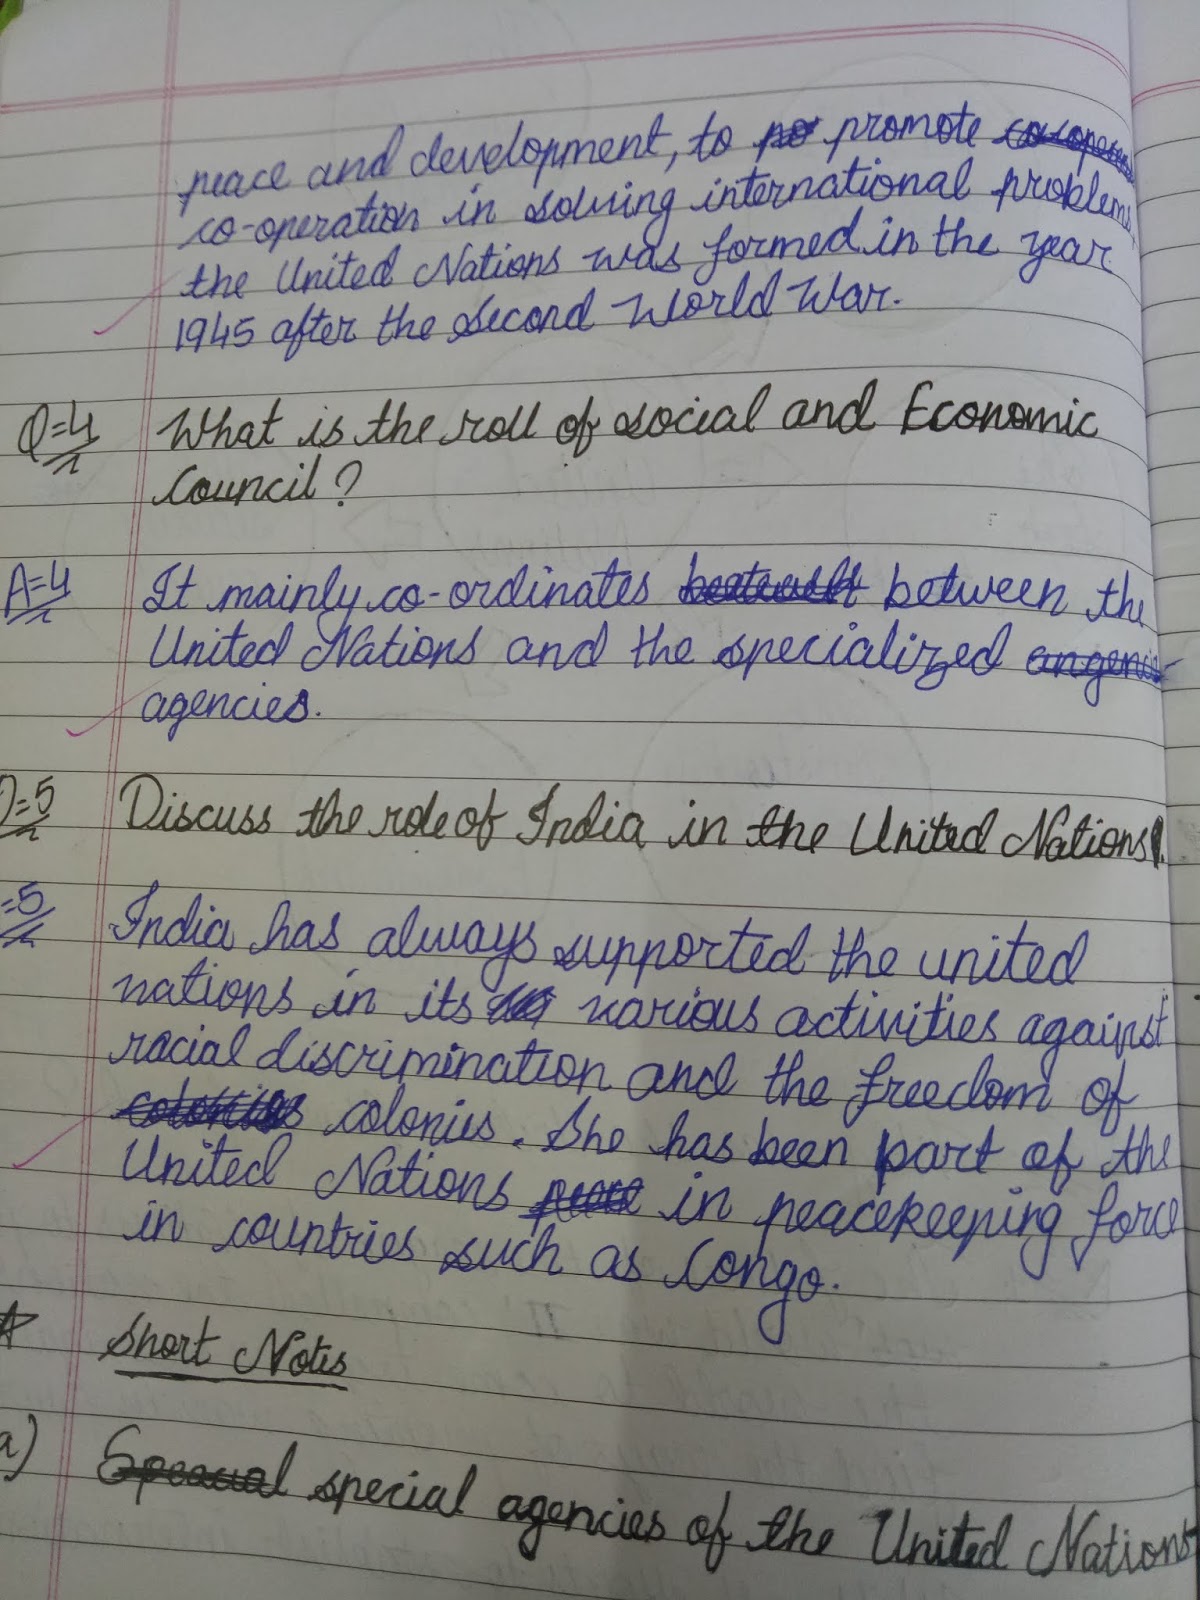 peace and development, to promote
co-operation in solving international problems
the United Nations was formed in the year
1945 after the Second World War.
Q=4 What is the roll of social and Economic
Council?
A=4 It mainly co-ordinates between the
United Nations and the specialized
agencies.
Q=5 Discuss the role of India in the United Nations.
=5 India has always supported the united
nations in its various activities against
racial discrimination and the freedom of
colonies. She has been part of the
United Nations in peacekeeping force
in countries such as Congo.
Short Notes
a) special agencies of the United Nations